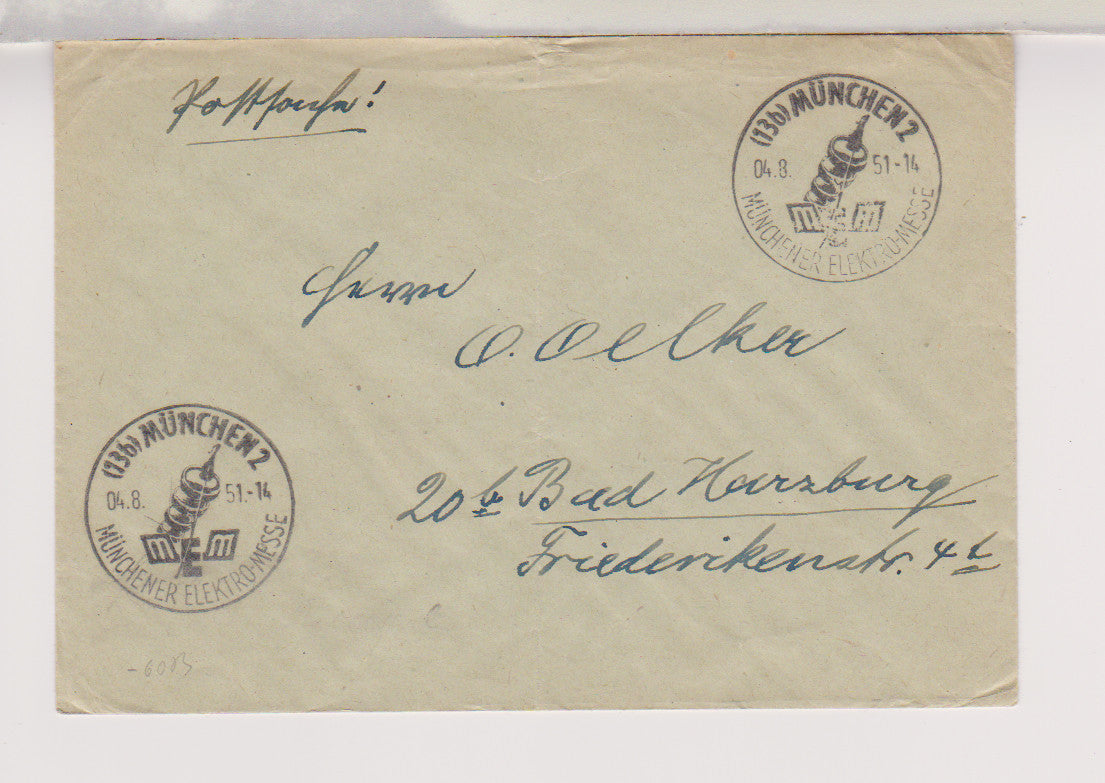 Postsache!
(13b) MÜNCHEN 2
04.8. 51-14
MEM
MÜNCHENER ELEKTRO-MESSE
Herrn
O. Oelker
(13b) MÜNCHEN 2
04.8. 51-14
MEM
MÜNCHENER ELEKTRO-MESSE
20b Bad Harzburg
Friederikenstr. 4